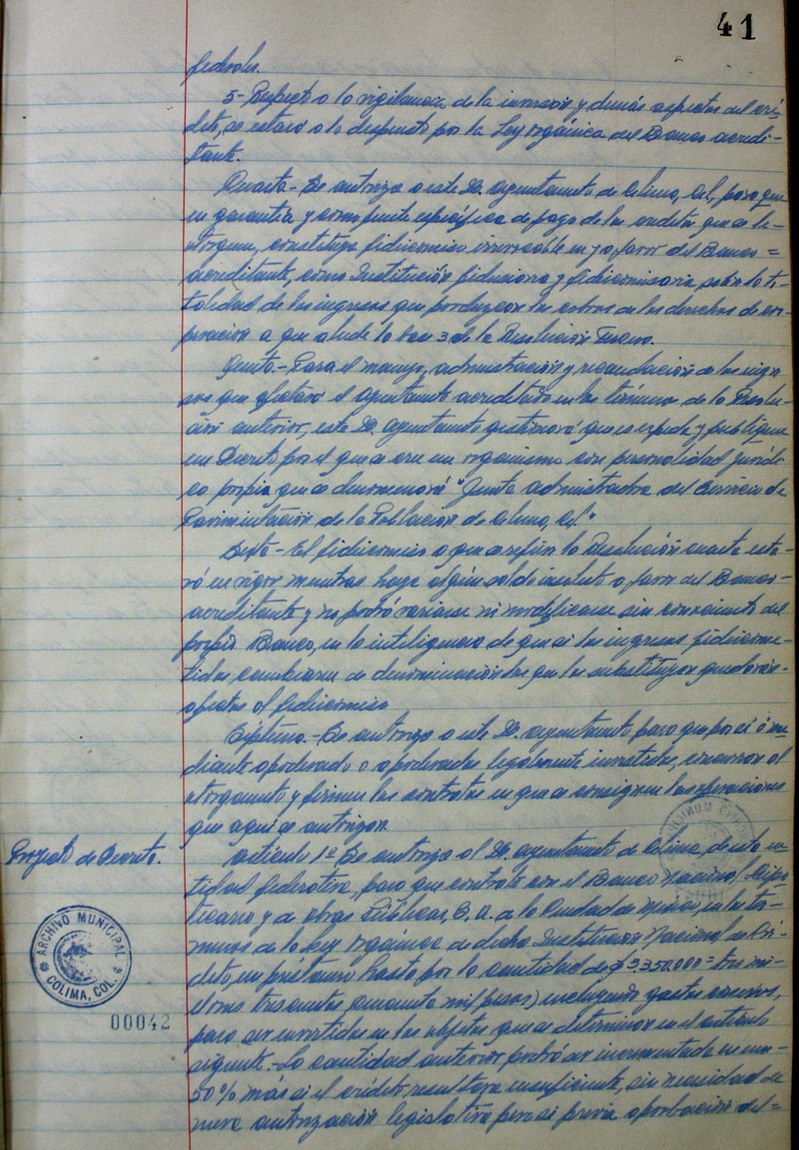 41
federales.
5- Respecto a la vigilancia de la inversion y demás aspectos del cré-
dito, se estará a lo dispuesto por la Ley Orgánica del Banco acredi-
tante.
Cuarta.- Se autoriza a este H. ayuntamiento de Colima, Col, para que
en garantía y como fuente específica de pago de los creditos que se le-
otorguen, constituya fideicomiso irrevocable en y a favor del Banco =
acreditante, como Institución fiduciaria y fideicomisaria, sobre la to-
talidad de los ingresos que produzcan los cobros de los derechos de coo-
peracion a que alude la 3 de la Resolución Tercera.
Quinta.- Para el manejo, administración y recaudación de los ingre-
sos que afectará el ayuntamiento acreditado en los términos de la Resolu-
ción anterior, este H. Ayuntamiento gestionará que se expida y publique
un Decreto por el que se cree un organismo con personalidad jurídi-
ca propia que se denominará "Junta administradora del Servicio de
Pavimentación de la Población de Colima, Col."
Sexta.- El fideicomiso a que se refiere la Resolución cuarta esta-
rá en vigor mientras haya algún saldo insoluto a favor del Banco-
acreditante y no podrá variarse ni modificarse sin consentimiento del
propio Banco, en la inteligencia de que si los ingresos fideicome-
tidos cambiaran de denominación los que los substituyan quedarán-
afectos al fideicomiso
Séptima.- Se autoriza a este H. ayuntamiento para que por sí ó me-
diante apoderado o apoderados legalmente investidos, concurran al
otorgamiento y firmen los contratos en que se consignen las operaciones
que aquí se autorizan.
Proyecto de Decreto.
Artículo 1º Se autoriza al H. ayuntamiento de Colima, de esta en-
tidad federativa, para que contrate con el Banco Nacional Hipo-
tecario y de obras Públicas, S. A. de la Ciudad de México, en los tér-
minos de la Ley Orgánica de dicha Institución Nacional de Cré-
dito, un préstamo hasta por la cantidad de $3.350.000= tres mi-
llones trescientos cincuenta mil pesos) incluyendo gastos conexos,
para ser invertidos en los objetos que se determinan en el artículo
siguiente.- La cantidad anterior podrá ser incrementada en un-
50% más si el crédito resultara insuficiente, sin necesidad de
nueva autorización legislativa pero sí previa aprobación del =
ARCHIVO MUNICIPAL
COLIMA, COL.
00042